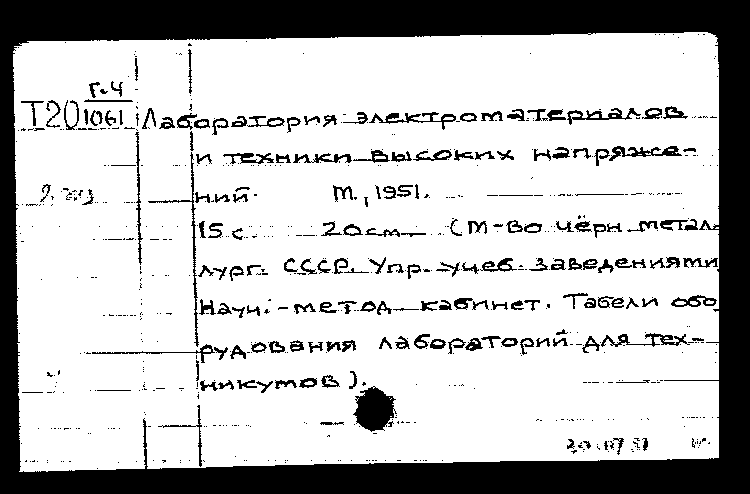 Г-4
Т20 1061 Лаборатория электроматериалов
и техники высоких напряже-
ний. М., 1951.
15 с. 20 см. (М-во чёрн. метал-
лург. СССР. Упр. учеб. заведениями
Науч.-метод. кабинет. Табели обо
рудования лабораторий для тех-
никумов).